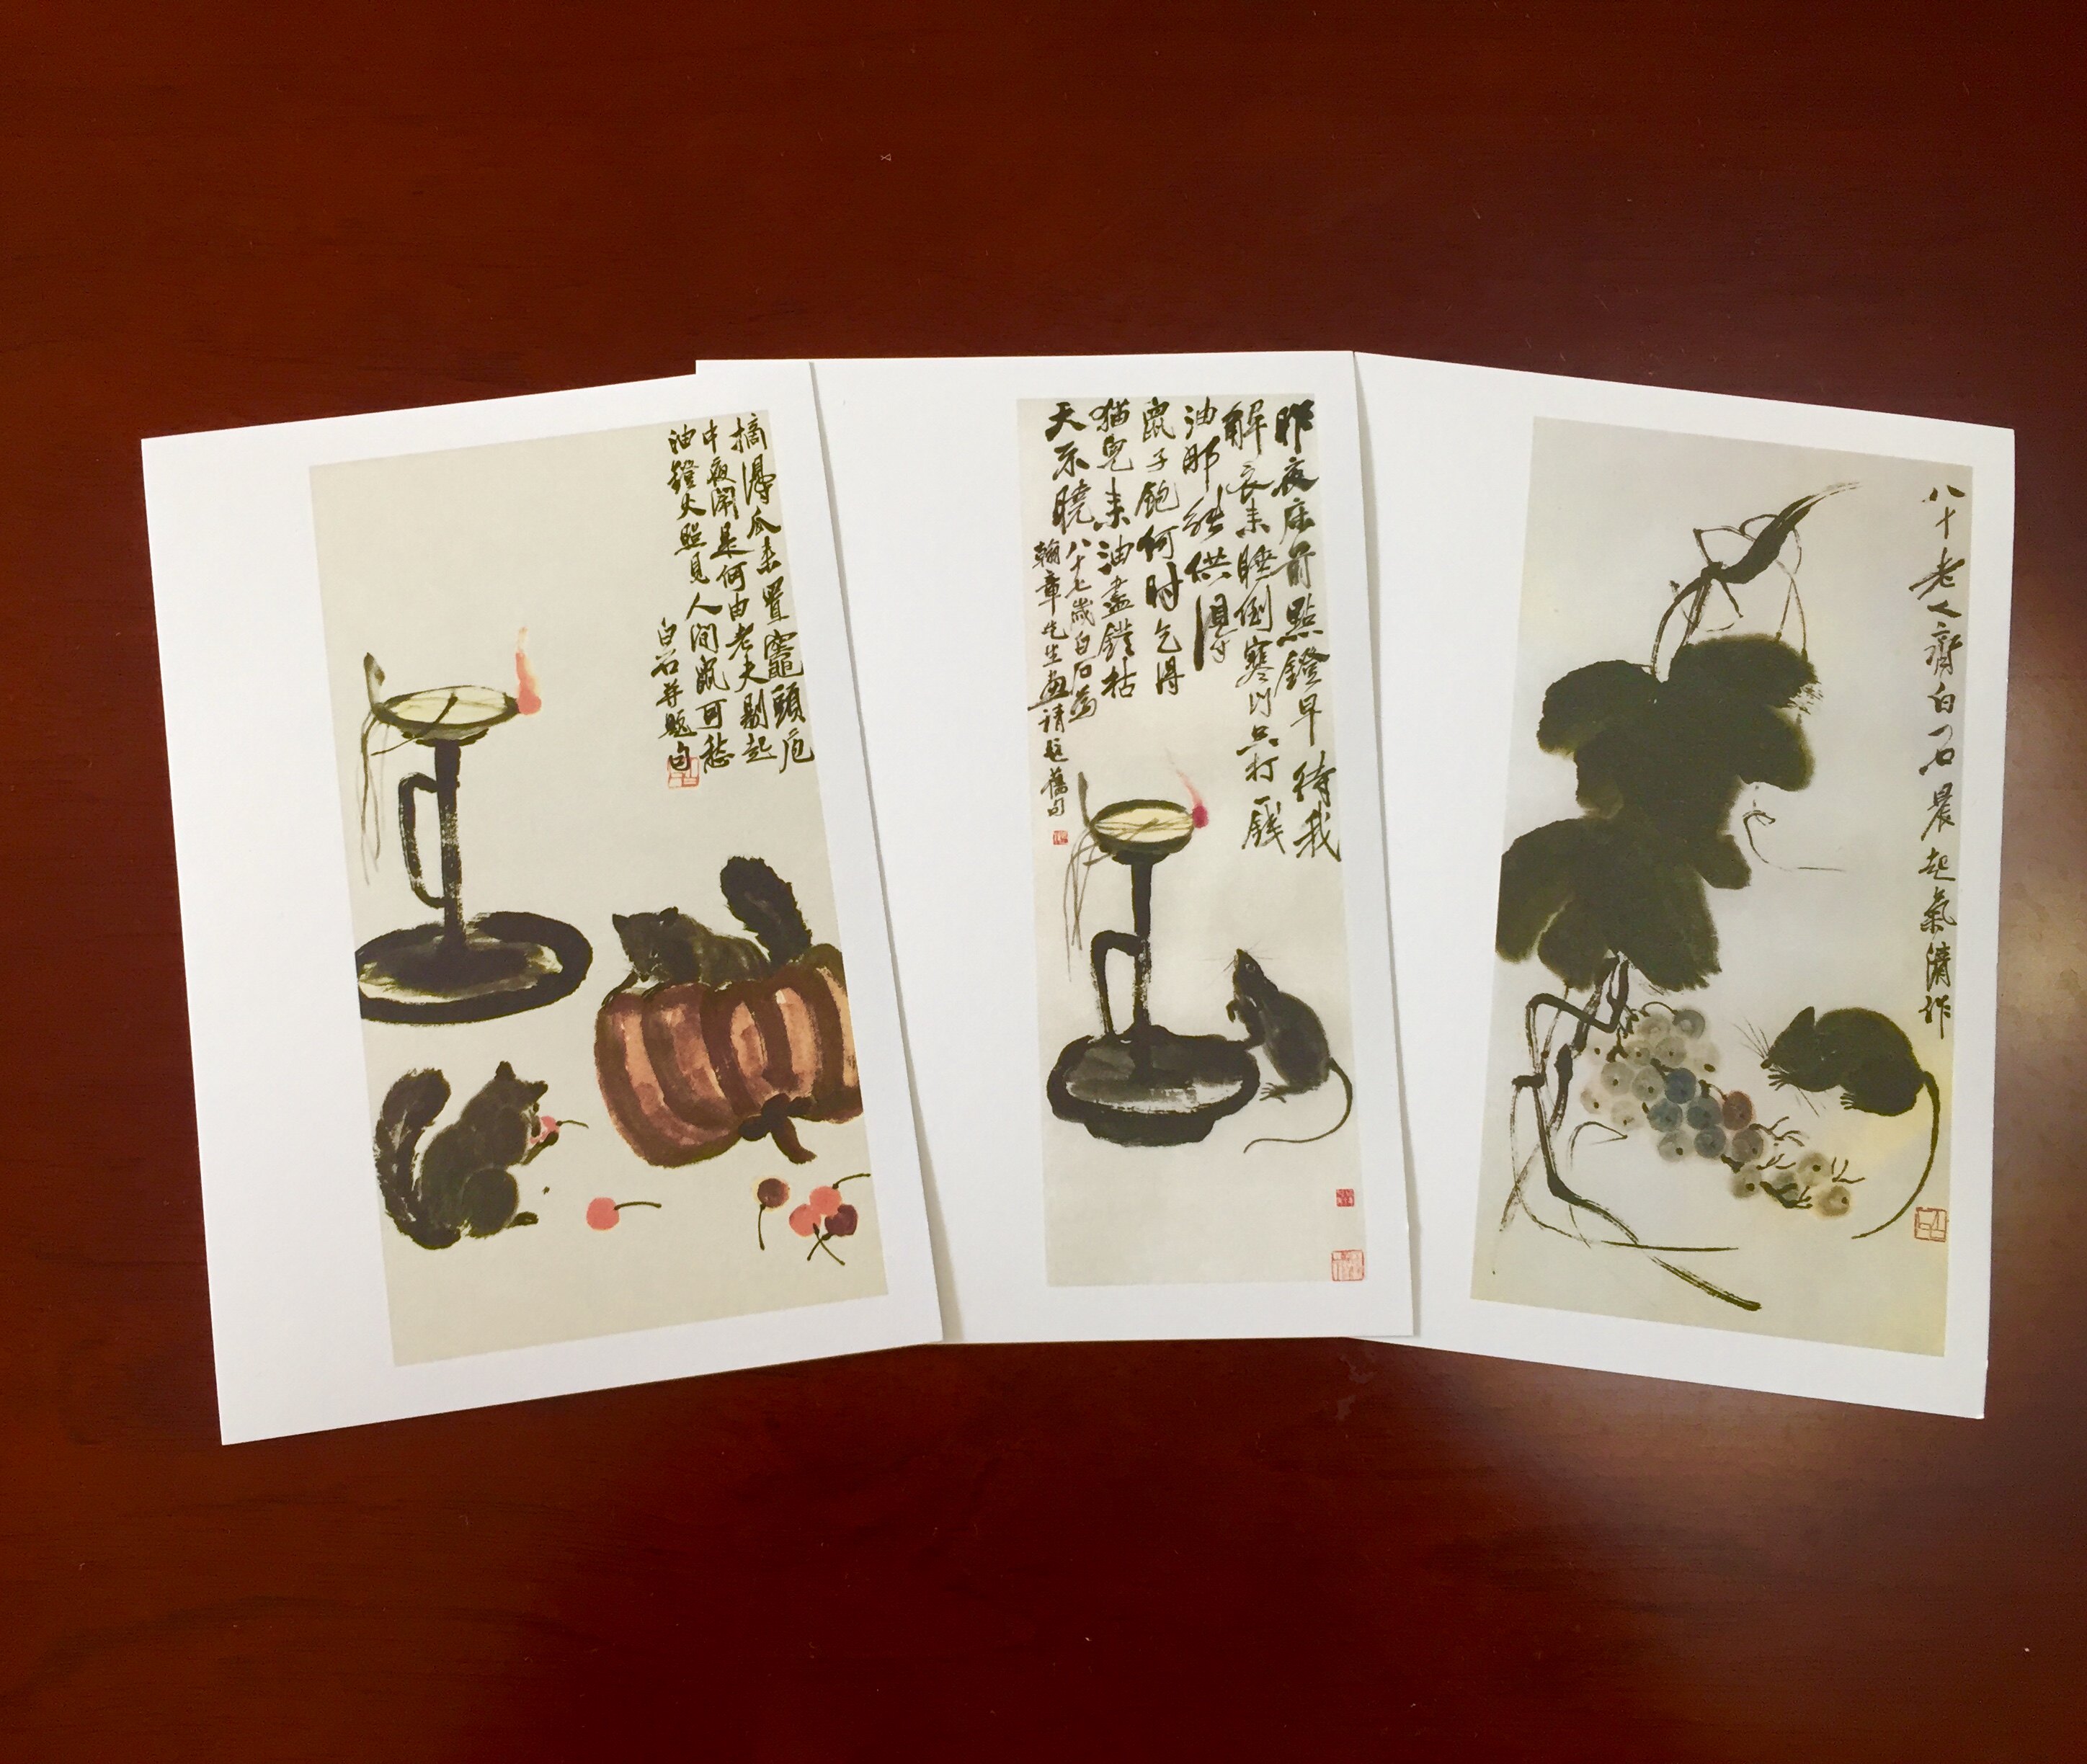 摘得瓜来置竈頭庖
中夜鬧是何由老夫剔起
油鐙火照見人間鼠可愁
白石并題句
昨夜床前點鐙早待我
解衣来睡倒寒门只打一錢
油那能供得
鼠子飽何时乞得
猫兒来油盡鐙枯
天不曉 八十七歲白石為
翰章先生画请題舊句
八十老人齊白石晨起氣清作